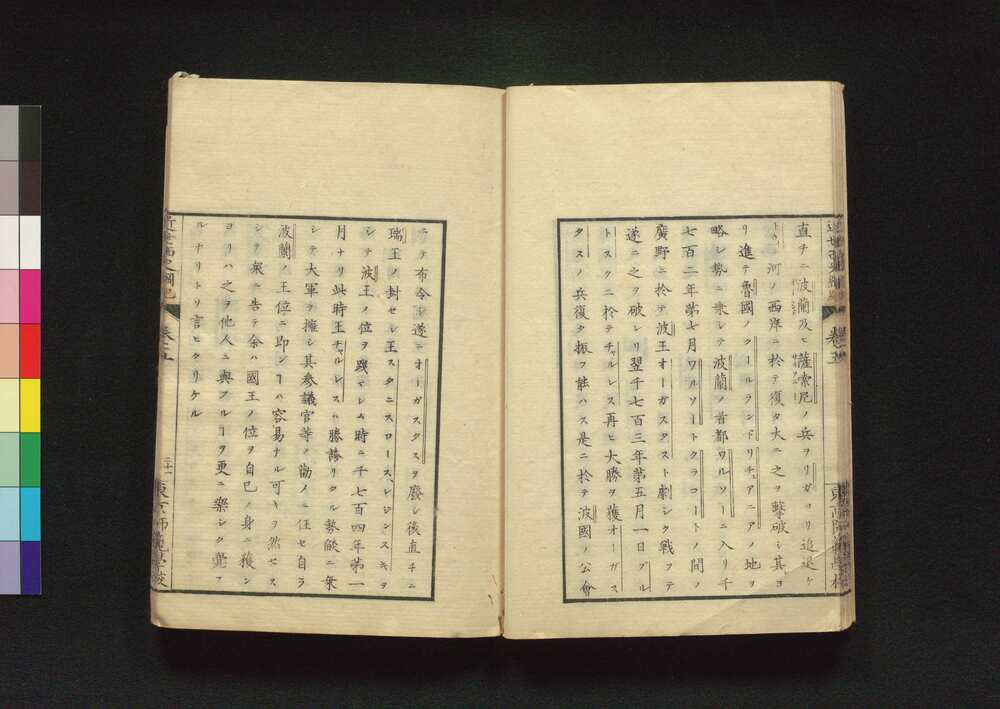 直チニ波蘭及ヒ薩索尼ノ兵ヲリガヨリ追退ケ
河ノ西岸ニ於テ復タ大ニ之ヲ擊破シ其ヨ
リ進テ魯國ノクールランドリチュアニアノ地ヲ
略シ勢ニ乘シテ波蘭ノ首都ワルソーニ入リ千
七百二年第七月ワルソートクラコートノ間ノ
廣野ニ於テ波王オーガスタスト劇シク戰フテ
遂ニ之ヲ破レリ翌千七百三年第五月一日プル
トスクニ於テチャルレス再ヒ大勝ヲ獲オーガス
タスノ兵復タ振フ能ハス是ニ於テ波國ノ公會
ニテ布令シ遂ニオーガスタスヲ廢シ後直チニ
瑞王ノ封セシ王スタニスロースレジンスキヲ
シテ波王ノ位ヲ踐マシム時ニ千七百四年第一
月ナリ此時王チャルレスハ勝誇リタル勢燄ニ乘
シテ大軍ヲ擁シ其參議官等ノ勸ノニ任セ自ラ
波蘭ノ王位ニ即シヿハ容易ナル可キヲ然セス
シテ衆ニ告テ余ハ國王ノ位ヲ自己ノ身ニ獲ン
ヨリハ之ヲ他人ニ與フルヿヲ更ニ樂シク覺フ
ルナリトリ言ヒタリケル
近世西史綱紀
卷之五
三十一
東京師範學校